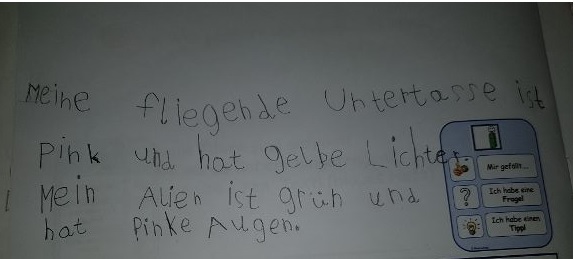 Meine fliegende Untertasse ist
Pink und hat gelbe Lichter.
Mein Alien ist grün und
hat Pinke Augen.
Mir gefällt...
Ich habe eine
Frage!
Ich habe einen
Tipp!